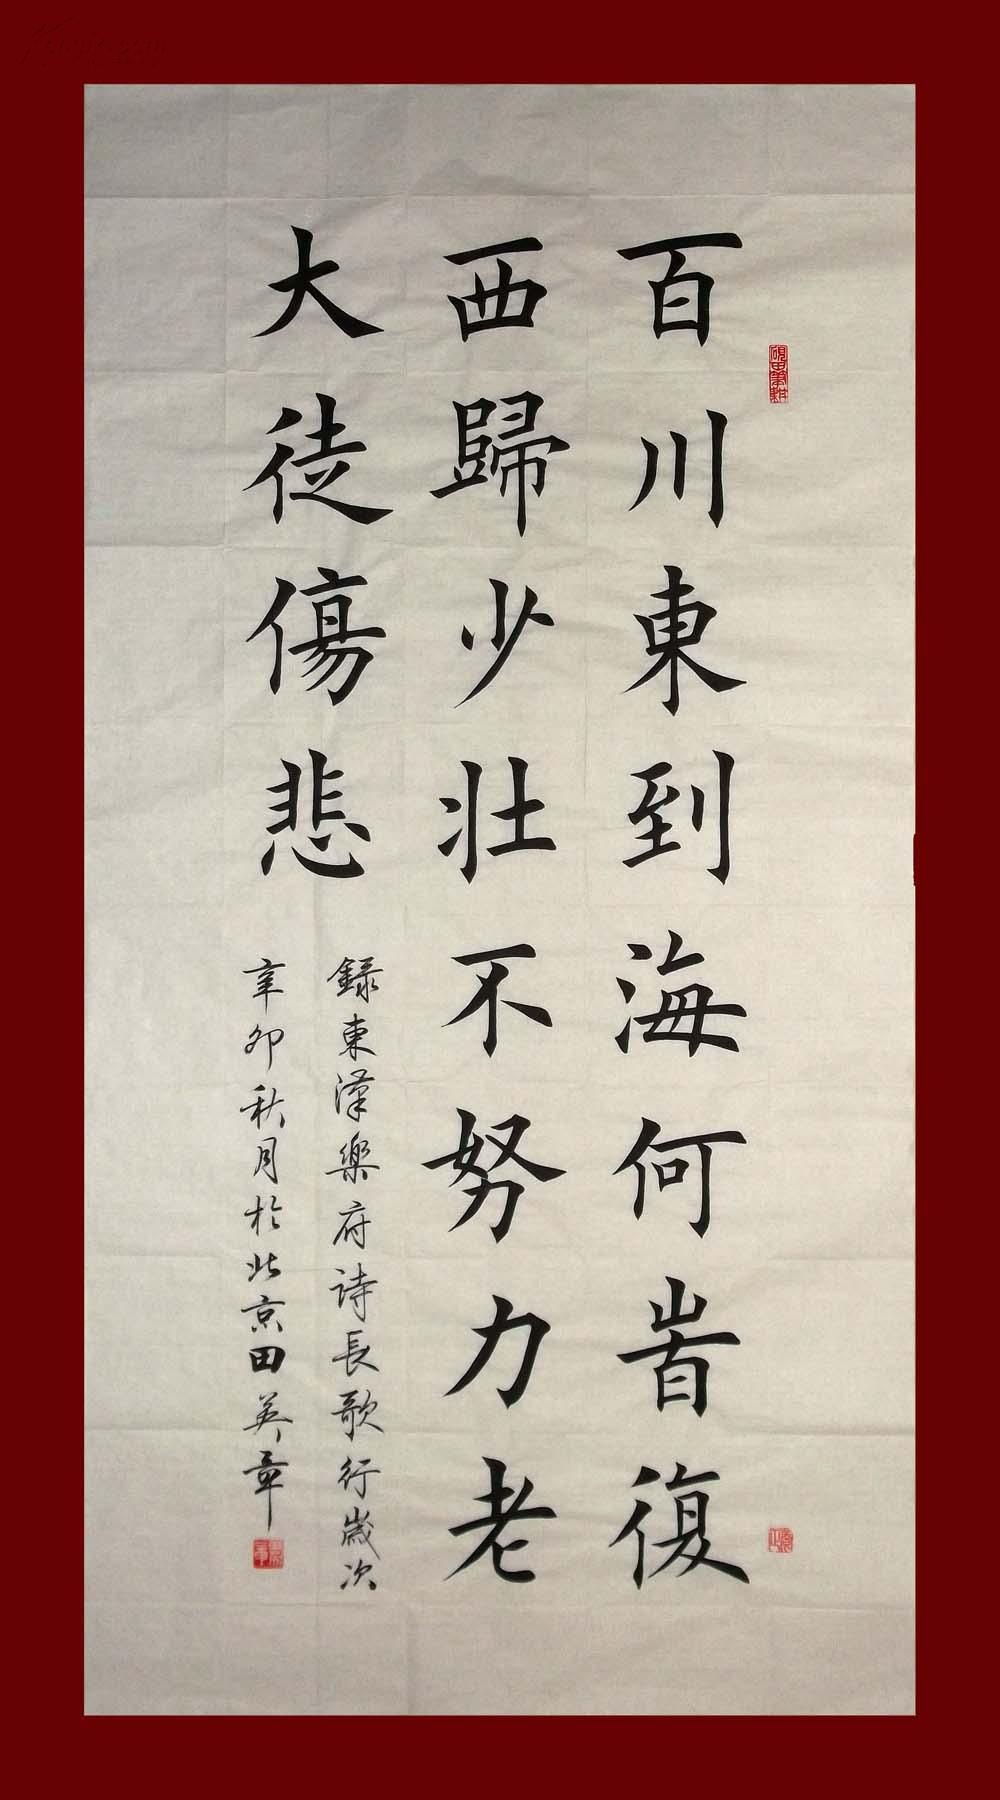 百川東到海何旹復
西歸少壯不努力老
大徒傷悲
録東漢樂府詩長歌行歲次
辛卯秋月於北京田英章
硯田筆耕